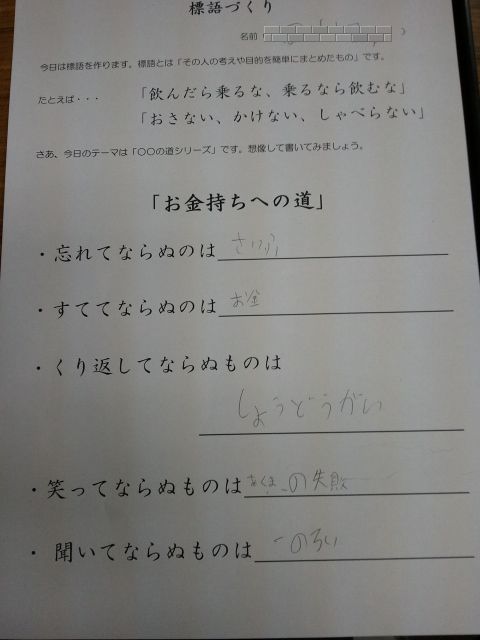 標語づくり
名前
今日は標語を作ります。標語とは「その人の考えや目的を簡単にまとめたもの」です。
たとえば・・・ 「飲んだら乗るな、乗るなら飲むな」
「おさない、かけない、しゃべらない」
さあ、今日のテーマは「〇〇の道シリーズ」です。想像して書いてみましょう。
「お金持ちへの道」
・忘れてならぬのは さいふ
・すててならぬのは お金
・くり返してならぬものは
しょうどうがい
・笑ってならぬものは の失敗
・聞いてならぬものは のろい